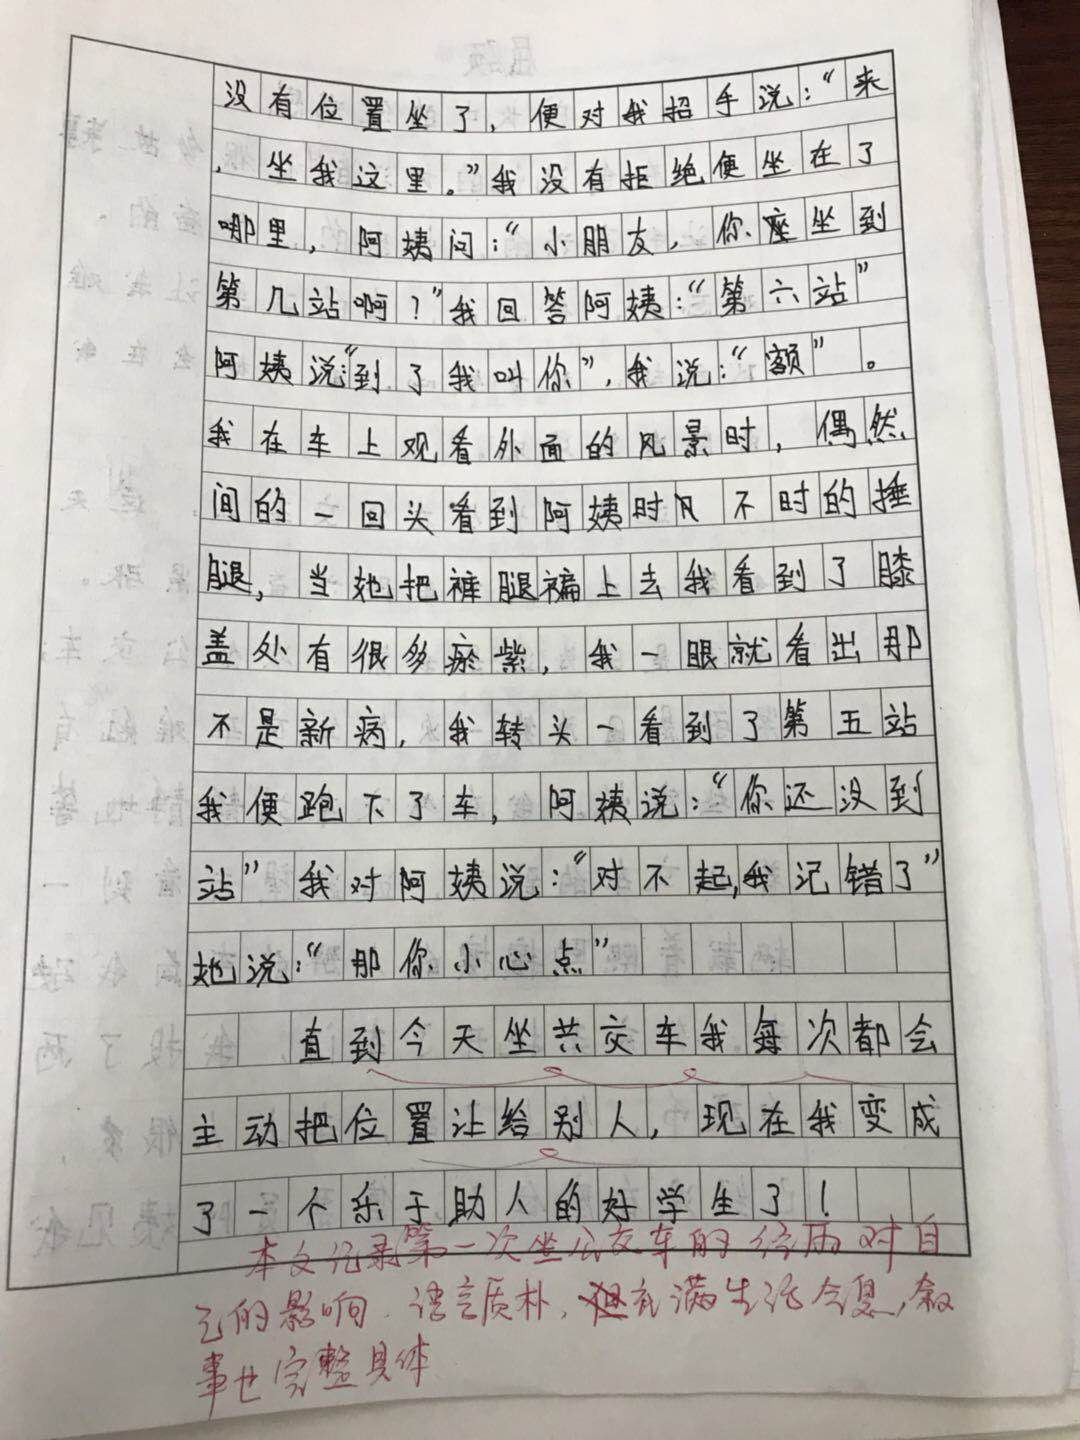 没有位置坐了，便对我招手说：“来
，坐我这里。”我没有拒绝便坐在了
哪里，阿姨问：“小朋友，你座坐到
第几站啊？”我回答阿姨：“第六站”
阿姨说：“到了我叫你”，我说：“额”。
我在车上观看外面的风景时，偶然
间的一回头看到阿姨时不时的捶
腿，当她把裤腿褊上去我看到了膝
盖处有很多瘀紫，我一眼就看出那
不是新病，我转头一看到了第五站
我便跑下了车，阿姨说：“你还没到
站”我对阿姨说：“对不起，我记错了”
她说：“那你小心点”
直到今天坐共交车我每次都会
主动把位置让给别人，现在我变成
了一个乐于助人的好学生了！
本文记录第一次坐公交车的经历对自
己的影响，语言质朴，但充满生活气息，叙
事也完整具体